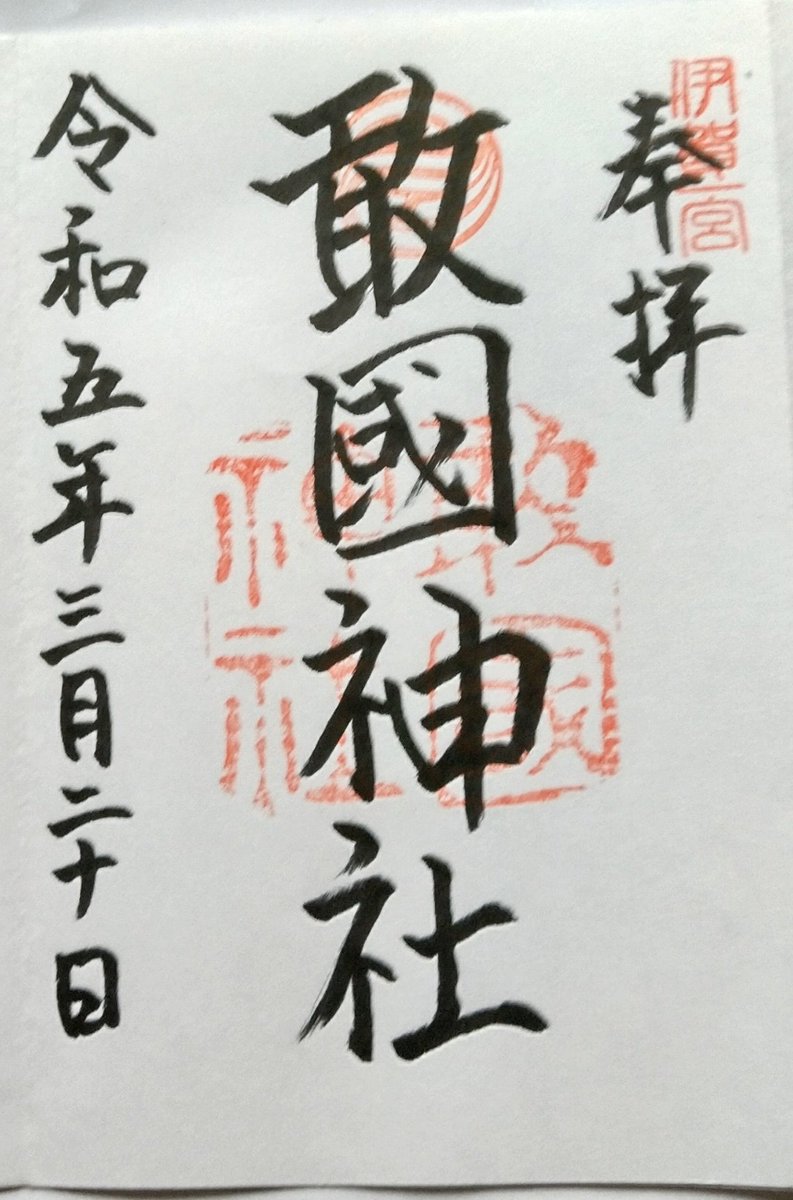 奉拝
伊賀一宮
敢國神社
敢國神社
令和五年三月二十日